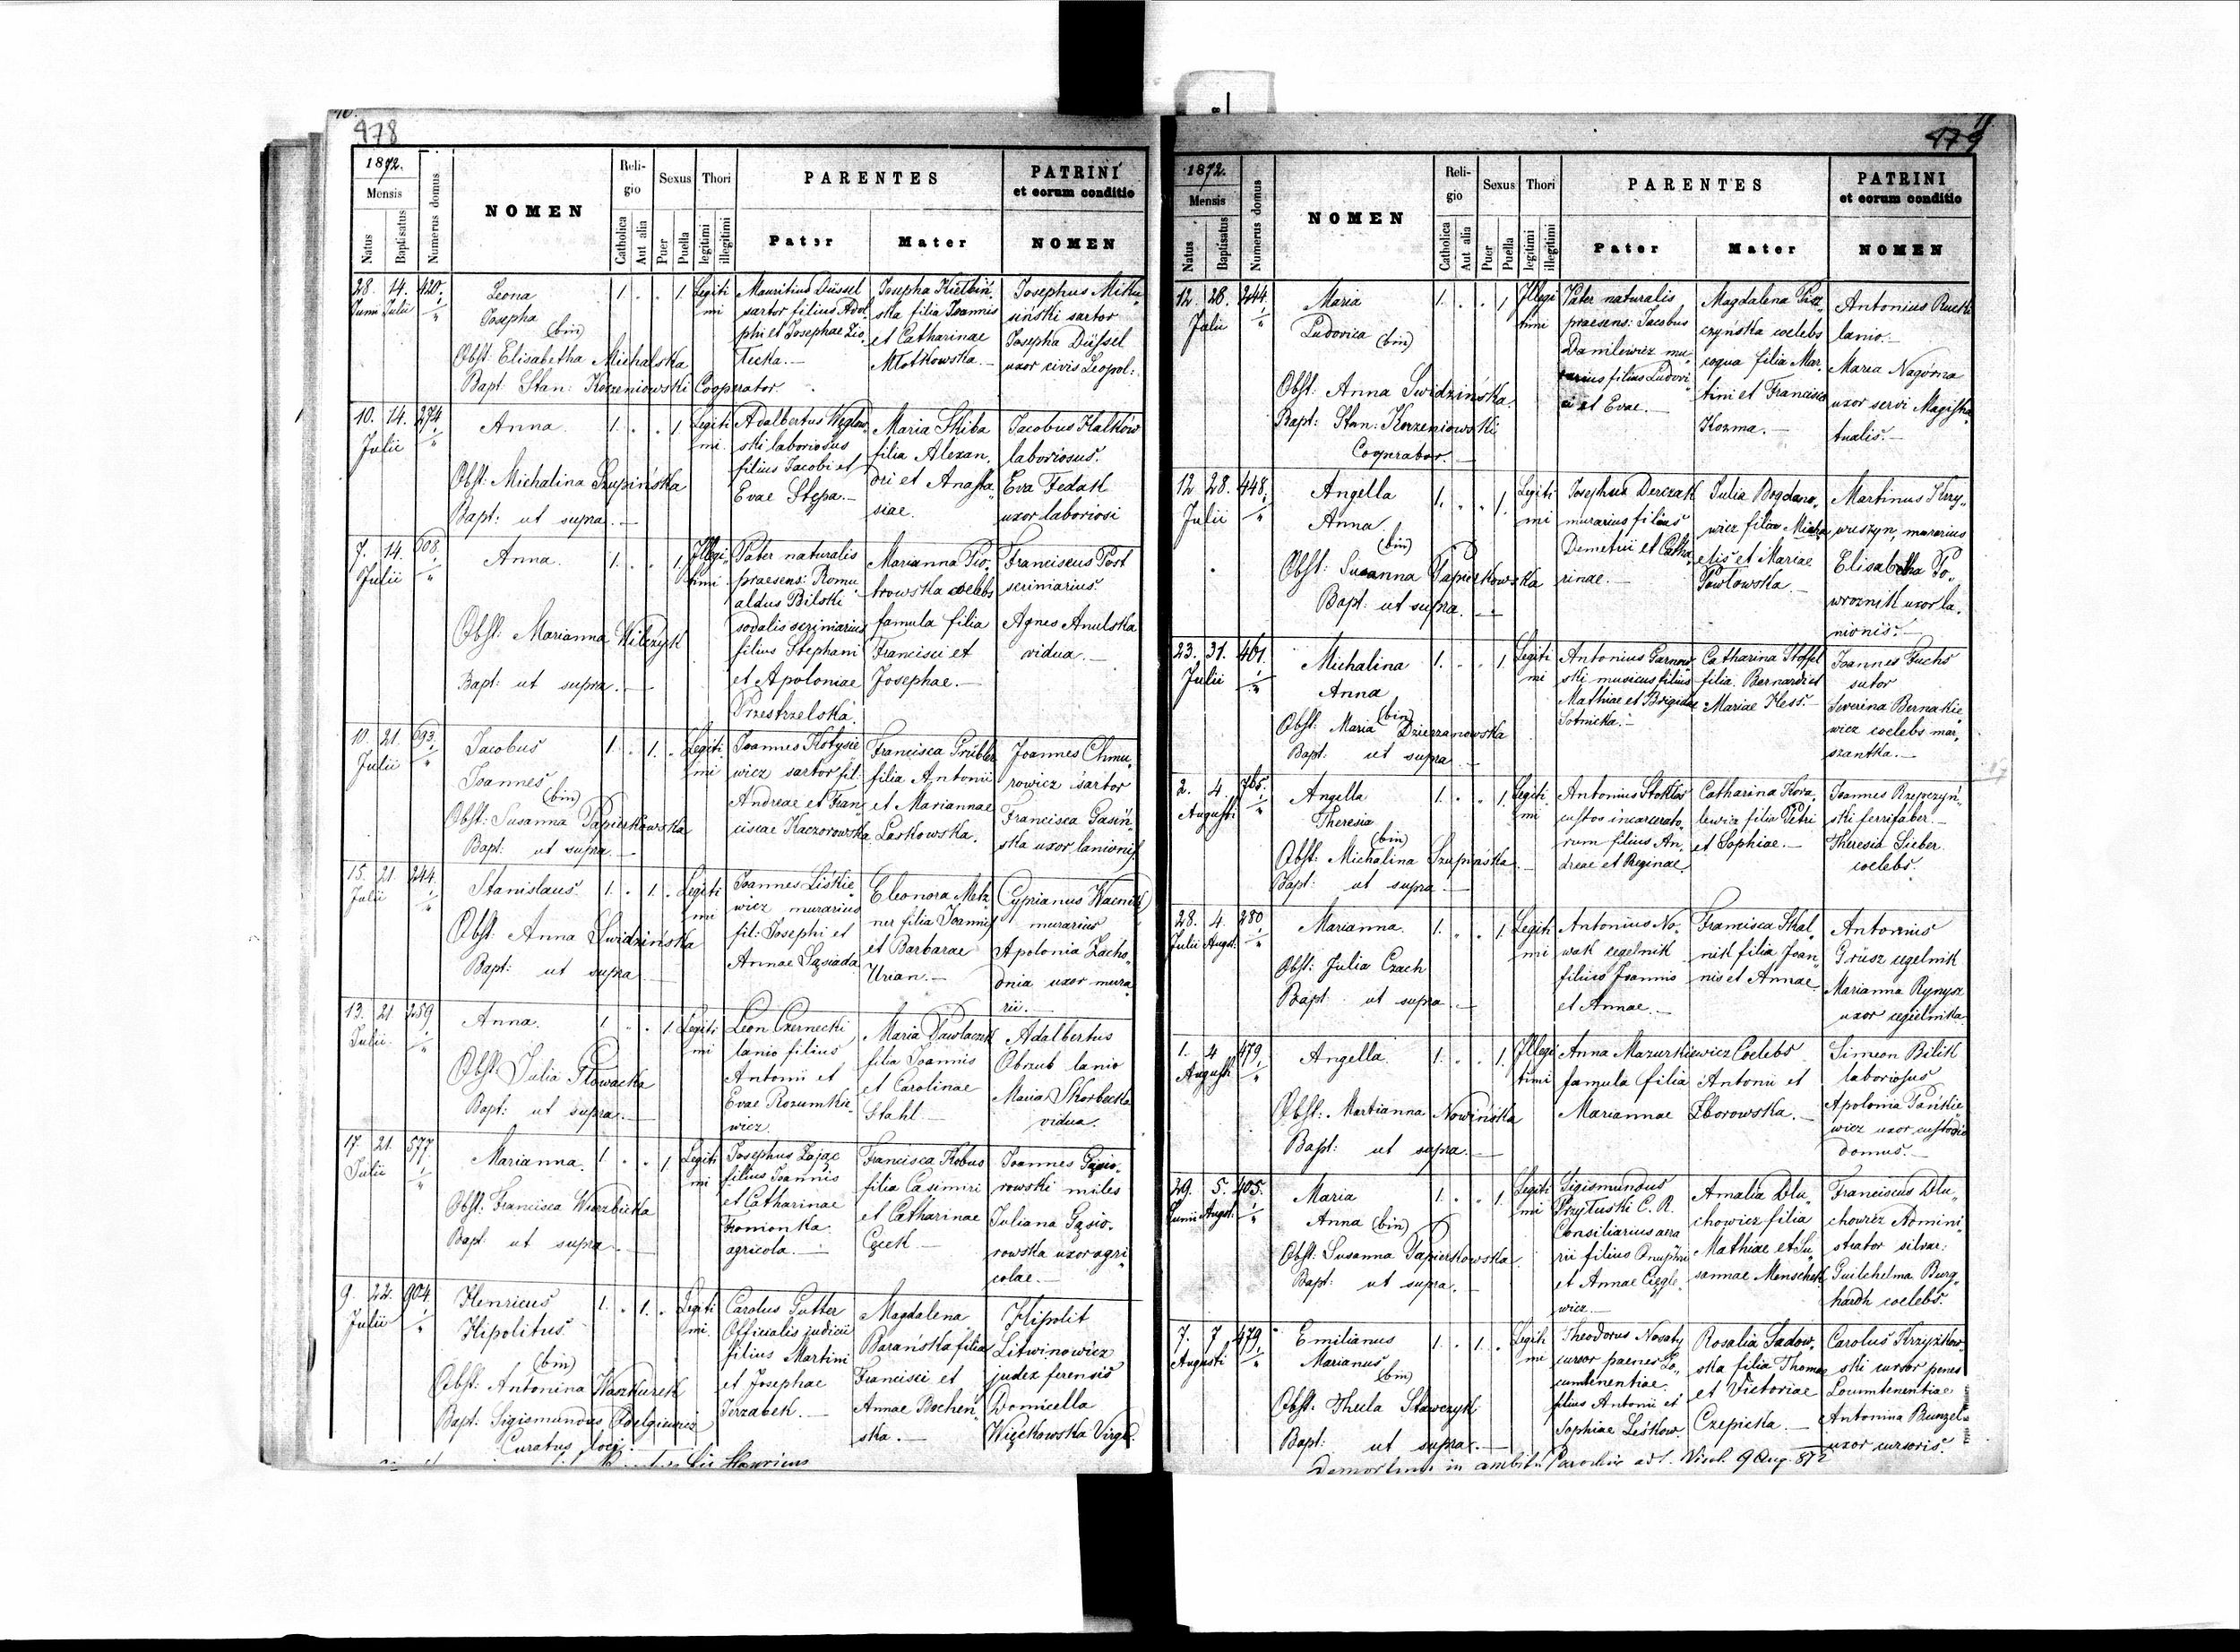 478
1872.
Mensis
Natus
Baptisatus
Numerus domus
NOMEN
Reli-
gio
Catholica
Aut alia
Sexus
Puer
Puella
Thori
legitimi
illegitimi
PARENTES
Pater
Mater
PATRINI
et eorum conditio
NOMEN
28. 14. 420.
Junii Julii
Leona
Josepha
(bin)
Obst: Elisabetha Michalska
Bapt: Stan: Korzeniowski Cooperator
1. 1.
Legiti
mi
Mauritius Düssel
sartor filius Adol
phi et Josephae Zio
łecka.
Josepha Kiełbiń
ska filia Joannis
et Catharinae
Młotkowska.
Josephus Miku
siński sartor
Josepha Düssel
uxor civis Leopol:
10. 14. 274
Julii
Anna
Obst: Michalina Szupińska
Bapt: ut supra.
1. 1
Legiti
mi
Adalbertus Węglow
ski laboriosus
filius Jacobi et
Evae Stępa.
Maria Skiba
filia Alexan
dri et Anasta
siae.
Jacobus Kalków
laboriosus.
Eva Fedak
uxor laboriosi
7. 14. 608.
Julii
Anna.
Obst: Marianna Wilczyk
Bapt: ut supra.
1. 1.
Illegi
timi
Pater naturalis
praesens: Romu
aldus Bilski
sodalis scriniarius
filius Stephani
et Apoloniae
Przestrzelska.
Marianna Pio
trowska coelebs
famula filia
Francisci et
Josephae.
Franciscus Post
scriniarius.
Agnes Anulska
vidua.
10. 21. 693.
Julii
Jacobus
Joannes
(bin)
Obst: Susanna Papierkowska
Bapt: ut supra.
1. 1.
Legiti
mi
Joannes Kotysie
wicz sartor fil:
Andreae et Fran
ciscae Kaczorowska
Francisca Grübler
filia Antonii
et Mariannae
Laskowska.
Joannes Chmu
rowicz sartor
Francisca Gasiń
ska uxor lanionis
15. 21. 244.
Julii
Stanislaus
Obst: Anna Swidzińska
Bapt: ut supra
1. 1.
Legiti
mi
Joannes Liskie
wicz murarius
fil: Josephi et
Annae Sąsiada
Eleonora Metz
ner filia Joannis
et Barbarae
Urian.
Cyprianus
murarius
Apolonia Zacho
dnia uxor mura
rii.
13. 21. 259
Julii
Anna.
Obst: Julia Głowacka
Bapt: ut supra.
1 1
Legiti
mi
Leon Czernecki
lanio filius
Antonii et
Evae Rozumkie
wicz.
Maria Pawlaczek
filia Joannis
et Carolinae
Stahl
Adalbertus
Obrzub lanio
Maria Skorbecka
vidua.
17. 21. 577.
Julii
Marianna.
Obst: Francisca Wierzbicka
Bapt: ut supra.
1. 1
Legiti
mi
Josephus Zając
filius Joannis
et Catharinae
Fronionka
agricola.
Francisca Kobus
filia Casimiri
et Catharinae
Cęcek
Joannes Gąsio
rowski miles
Juliana Gąsio
rowska uxor agri
colae.
9. 22. 904.
Julii
Henricus
Hipolitus
(bin)
Obst: Antonina Kaszkurek
Bapt: Sigismundus Odelgiewicz
Curatus loci.
1. 1.
Legiti
mi
Carolus Gutter
Officialis judicii
filius Martini
et Josephae
Jerzabek.
Magdalena
Barańska filia
Francisci et
Annae Bochen
ska.
Hipolit
Litwinowicz
judex ferensis
Domicella
Więckowska Virgo
479
1872.
Mensis
Natus
Baptisatus
Numerus domus
NOMEN
Reli-
gio
Catholica
Aut alia
Sexus
Puer
Puella
Thori
legitimi
illegitimi
PARENTES
Pater
Mater
PATRINI
et eorum conditio
NOMEN
12. 28. 244.
Julii
Maria
Ludovica (bin)
Obst: Anna Swidzińska.
Bapt: Stan: Korzeniowski
Cooperator.
1. 1
Illegi
timi
Pater naturalis
praesens: Jacobus
Danilewicz mu
rarius filius Ludovi
ci et Evae.
Magdalena Pisz
czyńska coelebs
coqua filia Mar
tini et Francisca
Kozma.
Antonius Rucki
lanio.
Maria Nagórna
uxor servi Magistra
tualis.
12 28. 448.
Julii
Angella
Anna.
(bin)
Obst: Susanna Papierkowska
Bapt: ut supra.
1. 1.
Legiti
mi
Josephus Derczak
murarius filius
Demetrii et Catha
rinae.
Julia Bogdano
wicz filia Micha
elis et Mariae
Pawłowska.
Martinus Krzy
wuszyn, murarius
Elisabetha Po
wroznik uxor la
nionis.
23. 31. 461.
Julii
Michalina
Anna
(bin)
Obst: Maria Dzierzanowska
Bapt: ut supra
1. 1
Legiti
mi
Antonius Garnow
ski musicus filius
Mathiae et Brigidae
Sotnicka.
Catharina Stoffel
filia Bernardi et
Mariae Hess.
Joannes Fuchs
sutor
Severina Bernakie
wicz coelebs mar
szantka.
2. 4. 765.
Augusti
Angella
Theresia
(bin)
Obst: Michalina Szupińska.
Bapt: ut supra
1. 1.
Legiti
mi
Antonius Stokłos
custos incarcerato
rum filius An
dreae et Reginae.
Catharina Kora
lewicz filia Petri
et Sophiae.
Joannes Rzepczyń
ski ferrifaber.
Theresia Sieber
coelebs.
28. 4. 280
Julii Augst:
Marianna.
Obst: Julia Czach
Bapt: ut supra.
1. 1.
Legiti
mi
Antonius No
wak cegelnik
filius Joannis
et Annae.
Francisca Skal
nik filia Joan
nis et Annae
Antonius
Grüsz cegelnik
Marianna Rynysz
uxor cegielnika
1. 4 479.
Augusti
Angella.
Obst: Martianna Nowińska
Bapt: ut supra.
1. 1.
Illegi
timi
Anna Mazurkiewicz Coelebs
famula filia Antonii et
Mariannae Zborowska.
Simeon Bilik
laboriosus
Apolonia Pańkie
wicz uxor custodis
domus.
29. 5. 405.
Junii Augst:
Maria
Anna (bin)
Obst: Susanna Papierkowska.
Bapt: ut supra.
1. 1.
Legiti
mi
Sigismundus
Przyłuski C. R.
Consiliarius aera
rii filius Onuphrii
et Annae Cięgle
wicz
Amalia Dłu
chowicz filia
Mathiae et Su
sannae Menschek
Franciscus Dłu
chowicz Admini
strator silvar:
Guilchelma Burg
hardh coelebs.
7. 7 479
Augusti
Emilianus
Marianus
(bin)
Obst: Thecla Stawczyk
Bapt: ut supra.
1. 1.
Legiti
mi
Theodorus Nosaty
cursor paenes Lo
cumtenentiae.
filius Antonii et
Sophiae Leśkow
Rosalia Sadow
ska filia Thomae
et Victoriae
Czepicka.
Carolus Krzyżkow
ski cursor penes
Locumtenentiae
Antonina Bunzel
uxor cursoris.
in ambitu Parochiae ad S. Nicol. 9 Aug. 872